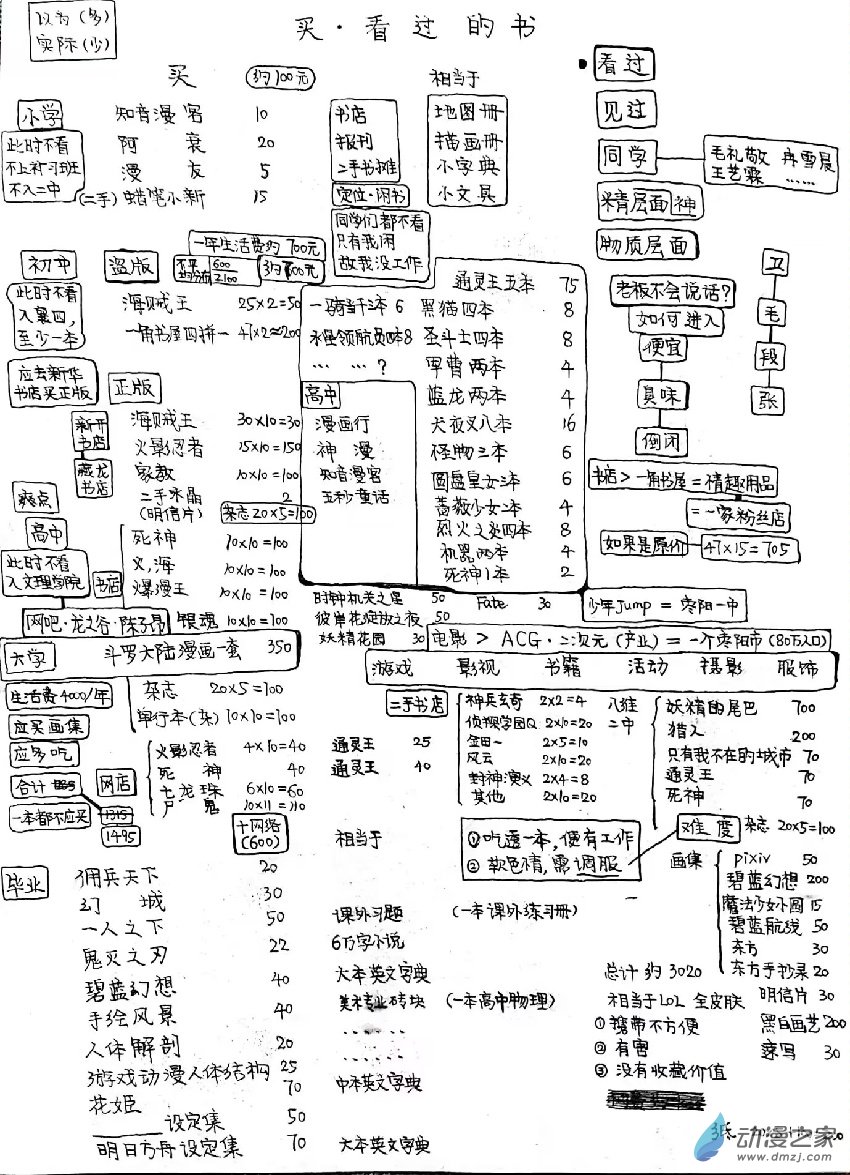 以为(多)
实际(少)
买·看过的书
买 约100元 相当于
看过
见过
同学
毛礼敬 冉雪晨
王艺霖 ……
精层面神
物质层面
小学
此时不看
不上补习班
不入二中
知音漫客 10
阿衰 20
漫友 5
(二手)蜡笔小新 15
书店
报刊
二手书摊
定位·闲书
同学们都不看
只有我闲
故我没工作
地图册
描画册
小字典
小文具
初中
盗版
一年生活费约700元
不平均分布 600 2100
约700元
此时不看
入襄四,
至少一本
海贼王 25×2=50
一角书屋四拼一 47×2≈200
应去新华
书店买正版
正版
新开书店
藏龙书店
海贼王 30×10=30
火影忍者 15×10=150
家教 10×10=100
二手水晶 2
(明信片)
杂志20×5=100
爽点
高中
此时不看
入文理学院
书店
死神 10×10=100
火,海 10×10=100
爆漫王 10×10=100
银魂 10×10=100
网吧·龙之谷·陈子昂
通灵王五本 75
一骑当千三本 6
永堡领航员四本 8
…… …?
黑猫四本 8
圣斗士四本 8
军曹两本 4
蓝龙两本 4
犬夜叉八本 16
怪物三本 6
圆盘皇女三本 6
蔷薇少女二本 4
烈火之炎四本 8
机器两本 4
死神1本 2
高中
漫画行
神漫
知音漫客
五秒童话
老板不会说话?
如何进入
便宜
臭味
倒闭
卫
毛
段
张
书店>一角书屋=情趣用品
=一家粉丝店
如果是原价 47×15=705
时钟机关之星 50
彼岸花绽放之夜 50
妖精花园 30
Fate 30
少年Jump=枣阳一中
电影>ACG·二次元(产业)=一个枣阳市(80万人口)
游戏 影视 书籍 活动 摄影 服饰
大学
斗罗大陆漫画一套 350
生活费4000/年
应买画集
应多吃
合计
一本都不应买
1315
1495
杂志 20×5=100
单行本(杂) 10×10=100
网店
火影忍者 4×10=40
死神 40
七龙珠 6×10=60
尸鬼 10×11=110
通灵王 25
通灵王 40
二手书店
神兵玄奇 2×2=4
侦探学园Q 2×10=20
金田一 2×5=10
风云 2×10=20
封神演义 2×4=8
其他 2×10=20
八维
二中
妖精的尾巴 700
猎人 200
只有我不在的城市 70
通灵王 70
死神 70
杂志 20×5=100
十网络
(600)
相当于
①吃透一本,便有工作
②软色情,需调服
难度
画集
pixiv 50
碧蓝幻想 200
魔法少女小圆 15
碧蓝航线 50
东方 30
东方手抄录 20
明信片 30
黑白画艺 200
速写 30
毕业
佣兵天下 20
幻城 30
一人之下 50
鬼灭之刃 22
碧蓝幻想 40
手绘风景 40
人体解剖 20
游戏动漫人体结构 25
花姬 70
设定集 50
明日方舟设定集 70
课外习题 (一本课外练习册)
6万字小说
大本英文字典
美术专业砖块 (一本高中物理)
……
……
中本英文字典
大本英文字典
总计约3020
相当于LOL全皮肤
①携带不方便
②有害
③没有收藏价值
动漫之家
www.dmzj.com